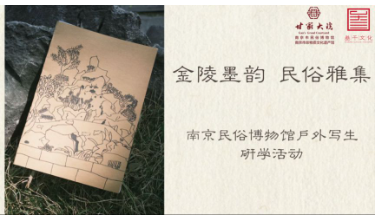 甘家大院
金陵墨韵 民俗雅集
南京民俗博物馆户外写生
研学活动